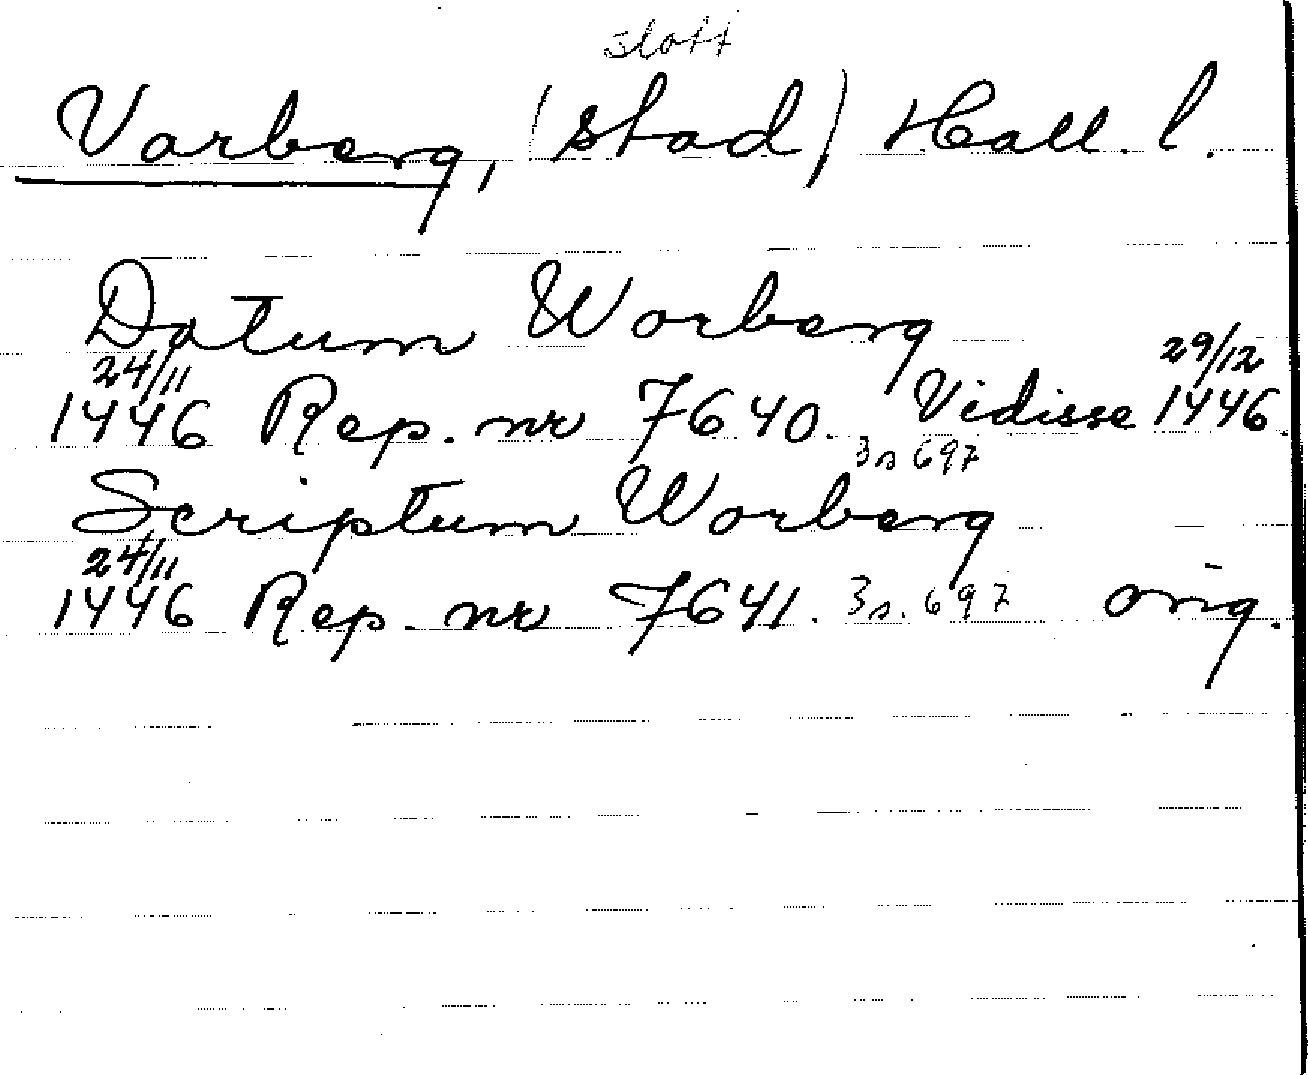 slott
Varberg, (stad) Hall. l.
Datum Warberg
24/11 29/12
1446 Rep. nr 7640. Vidisse 1446.
3 s 697
Scriptum Warberg
24/11
1446 Rep. nr 7641. 3 s. 697 orig.